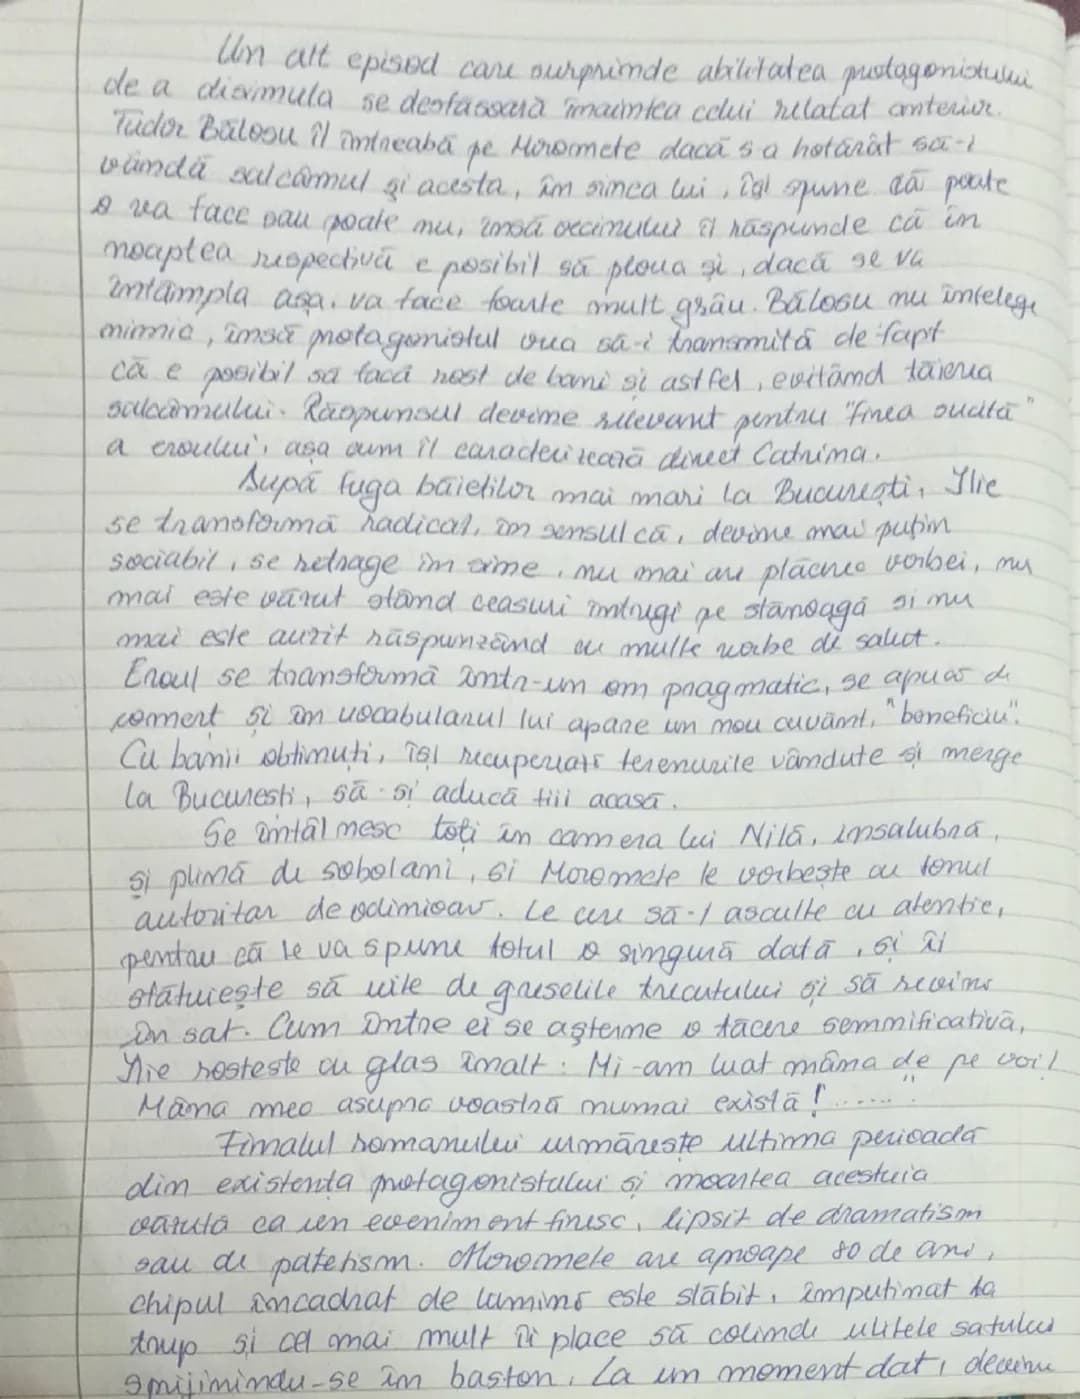 Un alt episod care surprinde abilitatea protagonistului
de a disimula se desfasoară înaintea celui relatat anterior.
Tudor Bălosu îl întreabă pe Moromete dacă s-a hotărât să-i
vândă salcâmul și acesta, în sinea lui, își spune că poate
o va face sau poate nu, însă vecinului îi răspunde că în
noaptea respectivă e posibil să ploua și, dacă se va
întâmpla așa, va face foarte mult grâu. Bălosu nu întelege
nimic, însă protagonistul vrea să-i transmită de fapt
că e posibil să facă rost de bani și astfel, evitând tăierea
salcâmului. Răspunsul devine relevant pentru "firea sucită"
a eroului, așa cum îl caracterizează direct Catrina.
După fuga băietilor mai mari la București, Ilie
se transformă radical, în sensul că, devine mai puțin
sociabil, se retrage în sine, nu mai are plăcerea vorbei, nu
mai este văzut stând ceasuri întregi pe stănoagă si nu
mai este auzit răspunzând cu multe vorbe de salut.
Eroul se transformă într-un om pragmatic, se apucă de
comert și în vocabularul lui apare un nou cuvânt, "beneficiu".
Cu banii obtinuți, își recuperează terenurile vândute și merge
la Bucuresti, să-si aducă fiii acasă.
Se întâlnesc toți în camera lui Nilă, insalubră,
și plină de sobolani, si Moromete le vorbește cu tonul
autoritar de odinioară. Le cere să-l asculte cu atentie,
pentru că le va spune totul o singură dată, și îi
sfătuiește să uite de greselile trecutului și să revină
în sat. Cum între ei se așterne o tăcere semnificativă,
Ilie rosteste cu glas înalt: Mi-am luat mâna de pe voi!
Mâna mea asupra voastră numai există! ......"
Finalul romanului urmărește ultima perioadă
din existența protagonistului și moartea acestuia
văzută ca un eveniment firesc, lipsit de dramatism
sau de patetism. Moromete are aproape 80 de ani,
chipul încadrat de lumină este slăbit, împutinat la
trup și cel mai mult îi place să colinde ulitele satului
sprijinindu-se în baston. La un moment dat, devine